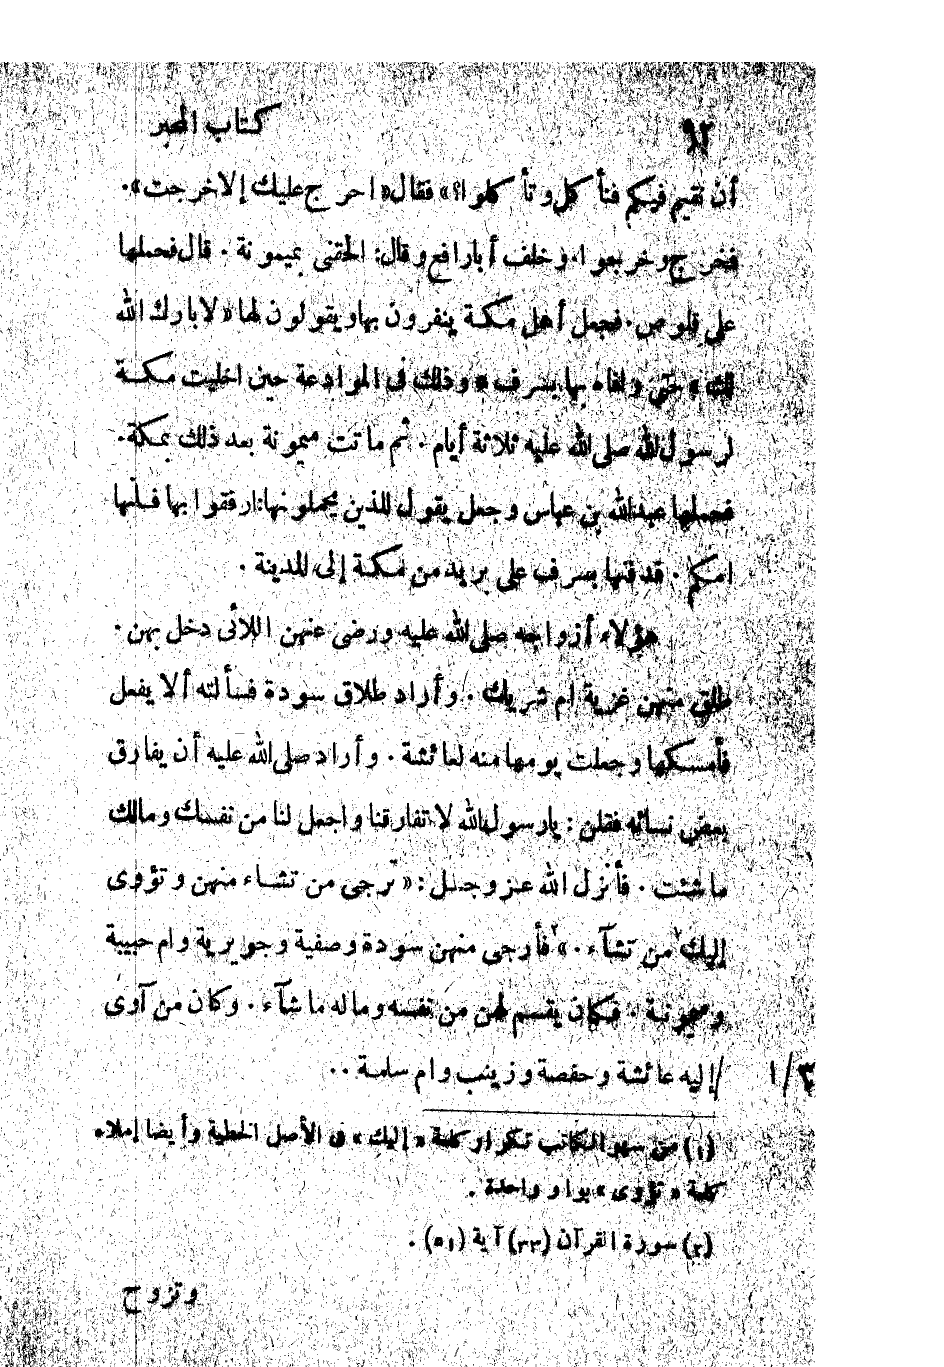 ٩٢
كتاب المحبر
أن نقيم فيكم فتأكل وتأكلوا؟» فقال «احرج عليك إلا خرجت».
فخرج وخرجوا، وخلف أبارافع وقال: الحقنى بميمونة . قال فحملها
على قلوص. فجعل أهل مكة ينفرون بها ويقولون لها «لا بارك الله
لك» حتى وافاه بها بسرف «وذلك فى الموادعة حين اخليت مكة
لرسول الله صلى الله عليه ثلاثة أيام . ثم ماتت ميمونة بعد ذلك بمكة.
فحملها عبدالله بن عباس وجعل يقول للذين يحملونها: ارفقوا بها فانها
امكم . قدفنها بسرف على بريد من مكة إلى المدينة .
هؤلاء أزواجه صلى الله عليه ورضى عنهن اللائى دخل بهن .
طلق منهن غزية ام شريك . وأراد طلاق سودة فسألته ألا يفعل
فأمسكها وجعلت يومها منه لعائشة . وأراد صلى الله عليه أن يفارق
بعض نسائه فقلن : يارسول الله لا تفارقنا واجعل لنا من نفسك ومالك
ما شئت . فأنزل الله عز وجل : «ترجى من تشاء منهن وتؤوى
إليك١ من تشآء .»٢ فأرجى منهن سودة وصفية وجويرية وام حبيبة
وميمونة . فكان يقسم لهن من نفسه وماله ما شآء . وكان من آوى
إليه عائشة وحفصة وزينب وام سلمة . .
٣/١
(١) من سهو الكاتب تكرار كلمة « إليك » فى الأصل الخطية وأيضا إملاء
كلمة « تؤوى » بواو واحدة .
(٢) سورة القرآن (٣٣) آية (٥١) .
وتزوج